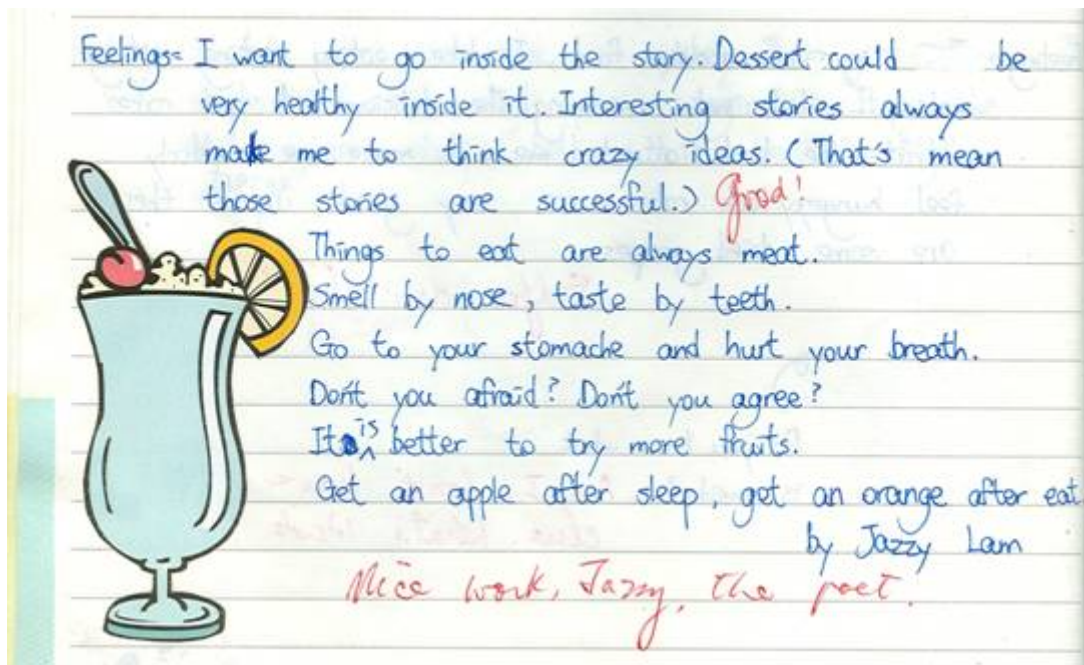 Feelings= I want to go inside the story. Dessert could be
very healthy inside it. Interesting stories always
make me to think crazy ideas. (That's mean
those stories are successful.) Good!
Things to eat are always meat.
Smell by nose, taste by teeth.
Go to your stomache and hurt your breath.
Don't you afraid? Don't you agree?
It is better to try more fruits.
Get an apple after sleep, get an orange after eat
by Jazzy Lam
Nice work, Jazzy, the poet.